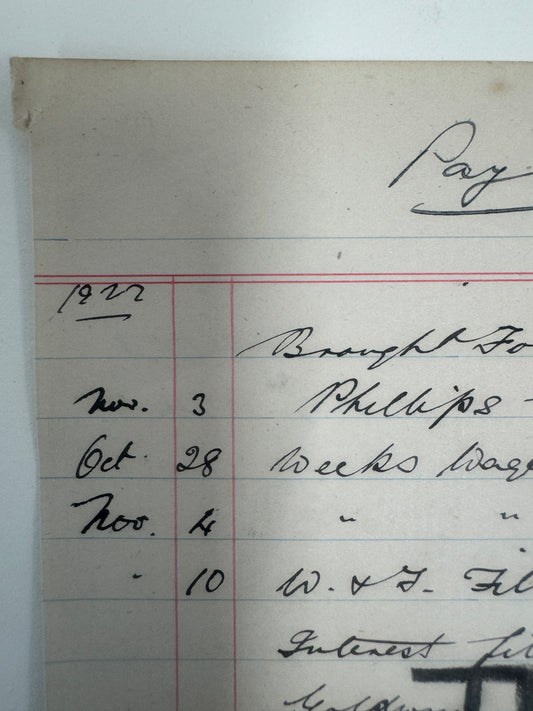 Pay
1922
Brought Fo
Nov. 3 Phillips -
Oct. 28 Weeks Wage
Nov. 4 " "
" 10 W. & F. Fil
Interest fit